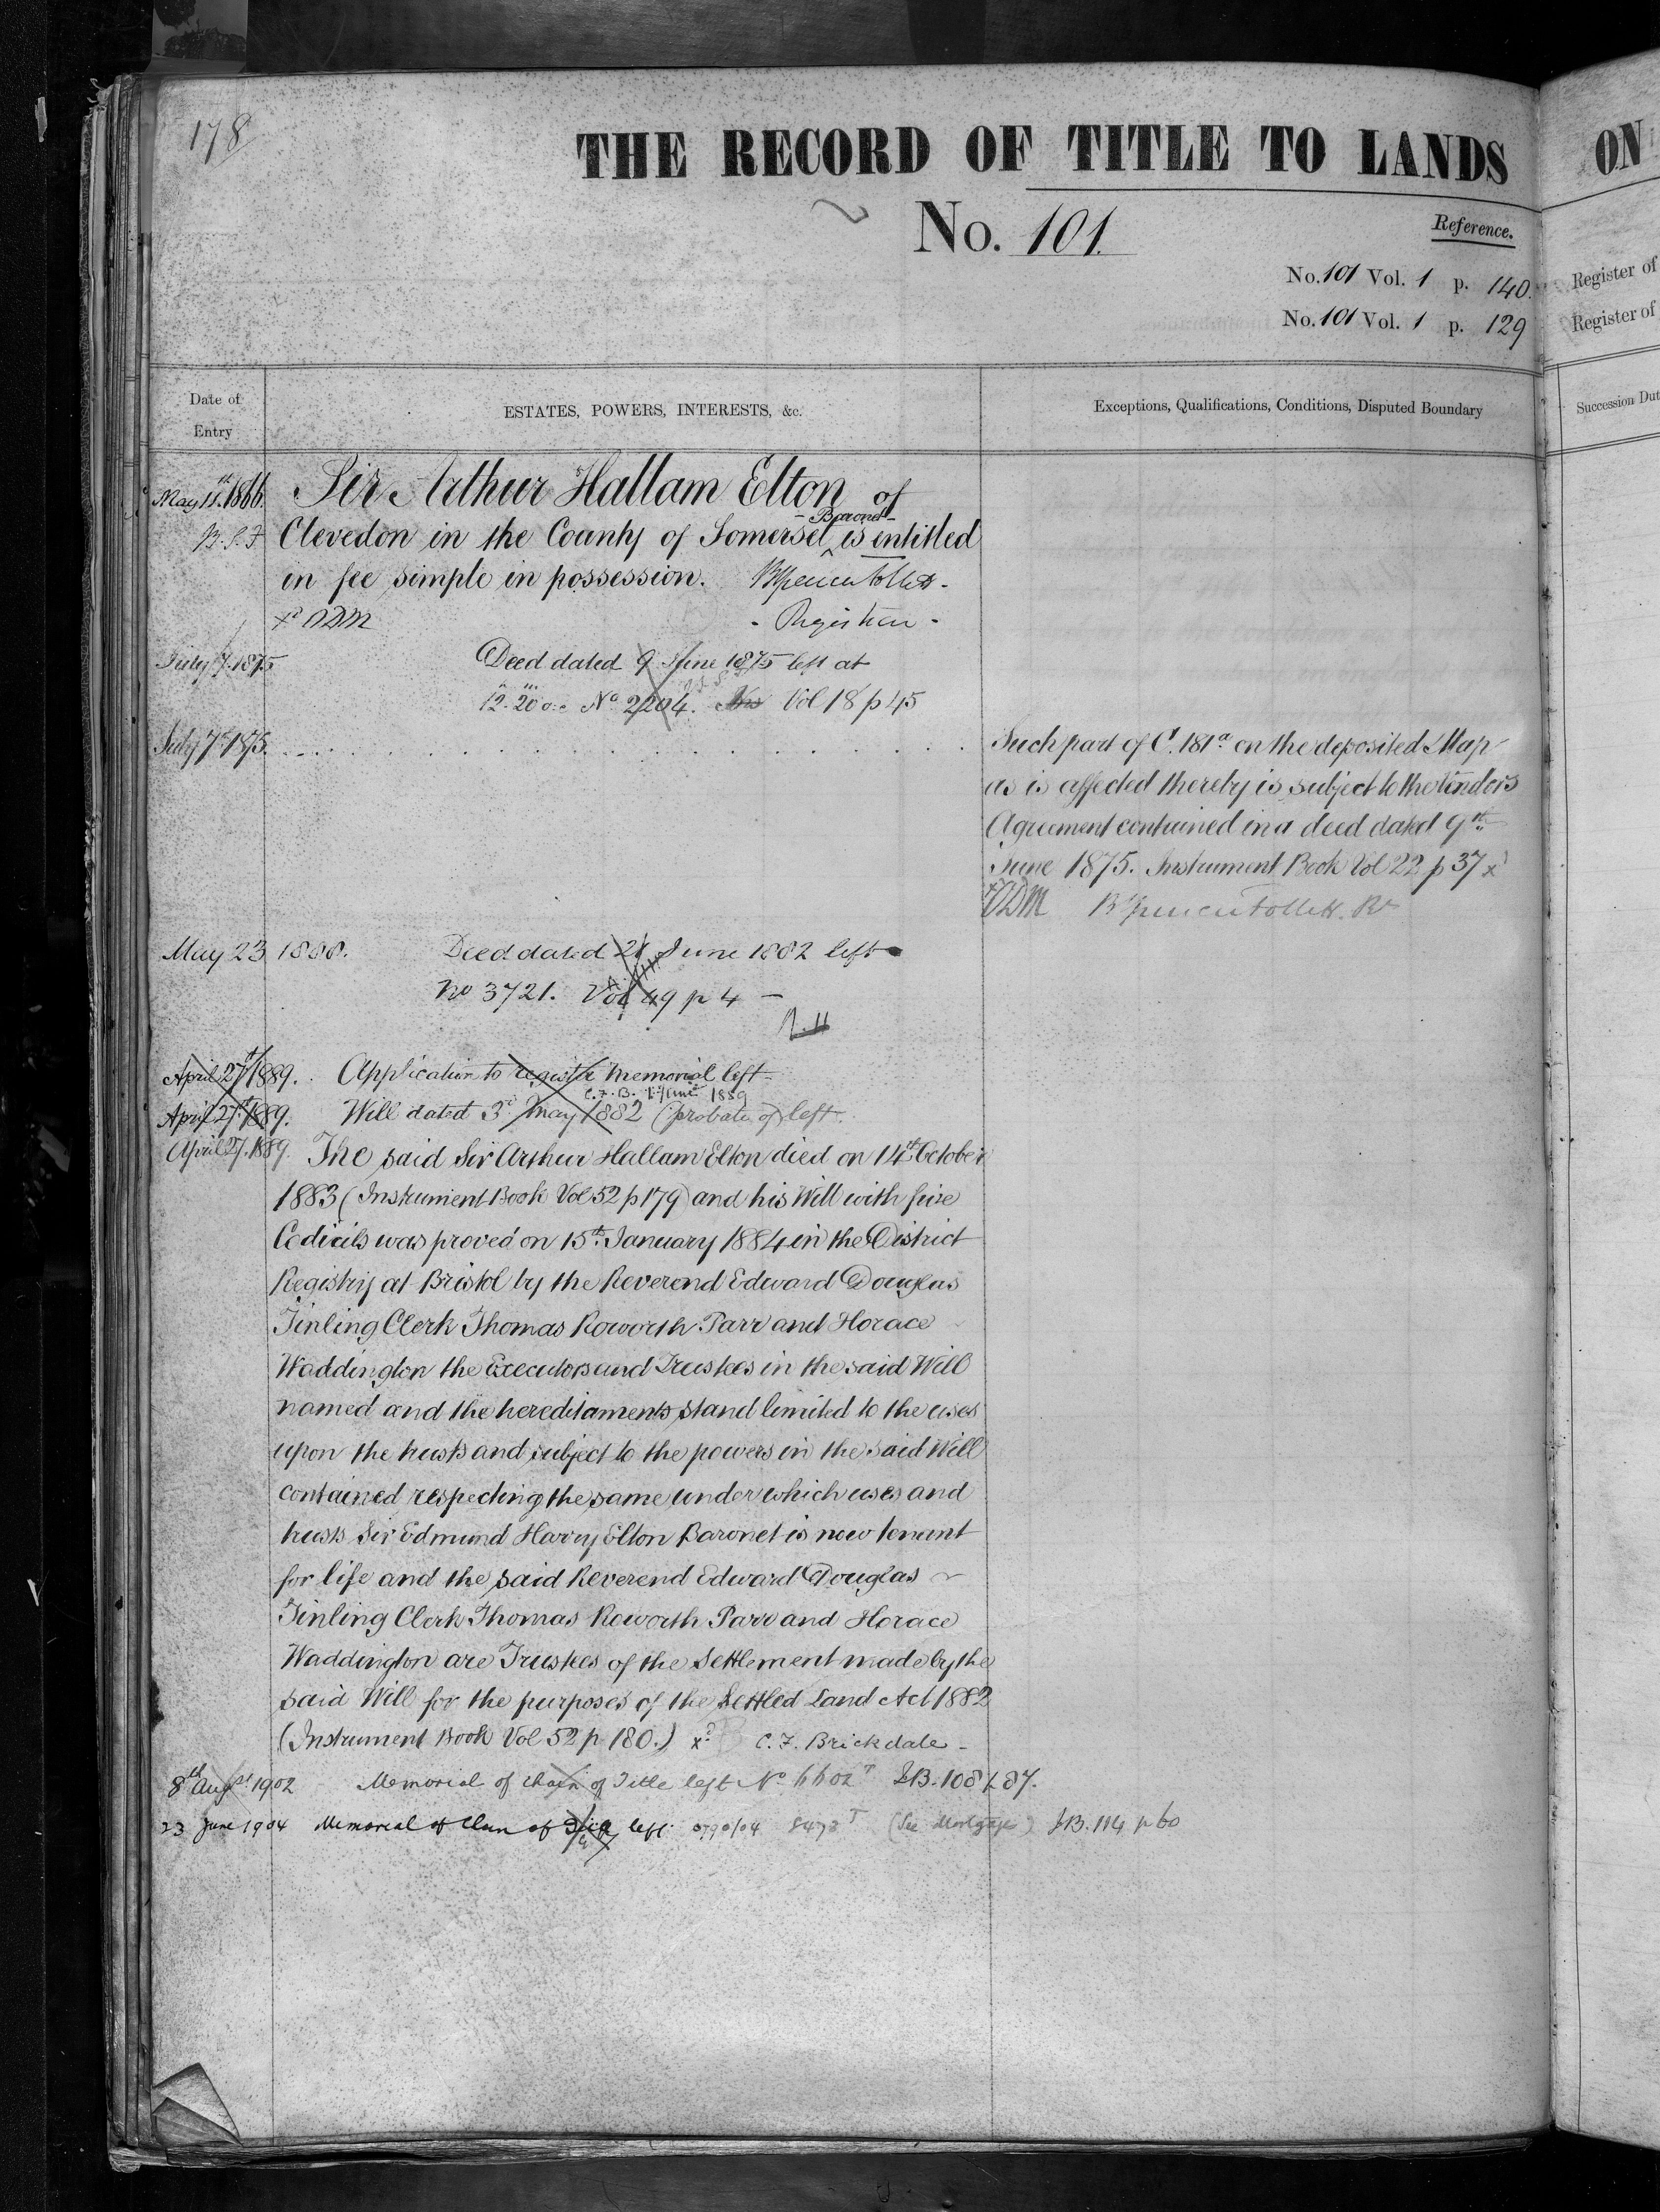 178
THE RECORD OF TITLE TO LANDS
No. 101.
Reference.
No. 101 Vol. 1 p. 140.
No. 101 Vol. 1 p. 129
Date of Entry
ESTATES, POWERS, INTERESTS, &c.
Exceptions, Qualifications, Conditions, Disputed Boundary
May 11th 1866. Sir Arthur Hallam Elton of
B.S.F Clevedon in the County of Somerset - Baronet - is entitled
in fee simple in possession. B Spencer Follett -
xd ADM - Registrar -
July 7. 1875 Deed dated 9 June 1875 left at
12.20 No 2204. Vol 18 p 45
July 7th 1875.
Such part of C. 181a on the deposited Map
as is affected thereby is subject to the Vendors
Agreement contained in a deed dated 9th
June 1875. Instrument Book Vol 22 p 37 x
xd ADM B Spencer Follett. Rr
May 23 1888. Deed dated 21 June 1882 left
No 3721. Vol 49 p 4 -
R.H
April 27th 1889. Application to register Memorial left -
C.F.B. 1889
April 27th 1889. Will dated 3d May 1882 (probate of) left.
April 27. 1889. The said Sir Arthur Hallam Elton died on 14th October
1883 (Instrument Book Vol 52 p 179) and his Will with five
Codicils was proved on 15th January 1884 in the District
Registry at Bristol by the Reverend Edward Douglas
Tinling Clerk Thomas Roworth Parr and Horace
Waddington the Executors and Trustees in the said Will
named and the hereditaments stand limited to the uses
upon the trusts and subject to the powers in the said Will
contained respecting the same under which uses and
trusts Sir Edmund Harry Elton Baronet is now tenant
for life and the said Reverend Edward Douglas
Tinling Clerk Thomas Roworth Parr and Horace
Waddington are Trustees of the Settlement made by the
said Will for the purposes of the Settled Land Act 1882
(Instrument Book Vol 52 p 180.) xd C. F. Brickdale -
8th Augst 1902 Memorial of Chain of Title left No 6602T I.B. 108 p 87.
23 June 1904 Memorial of Chain of Title left 0790/04 8473T (See Mortgages) I.B. 114 p 60
ON
Register of
Register of
Succession Dut